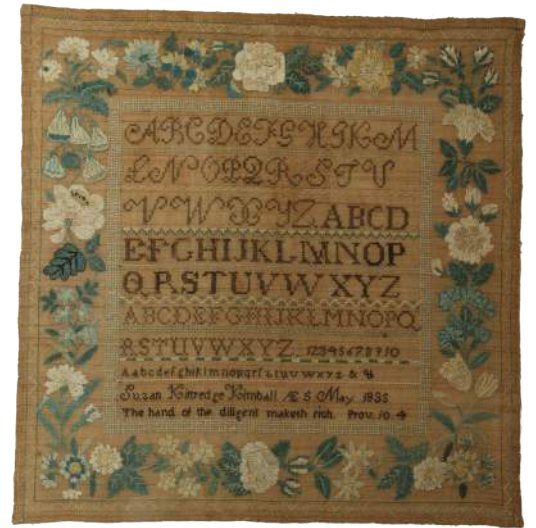 ABCDEFGHIKM
LNOPQRSTU
VWXYZ ABCD
EFGHIJKLMNOP
QRSTUVWXYZ
ABCDEFGHIJKLMNOPQ
RSTUVWXYZ. 12345678910
Aabcdefghiklmnopqrſstuvwxyz &
Susan Kittredge Kimball Æ May 1835
The hand of the diligent maketh rich. Prov. 10 4